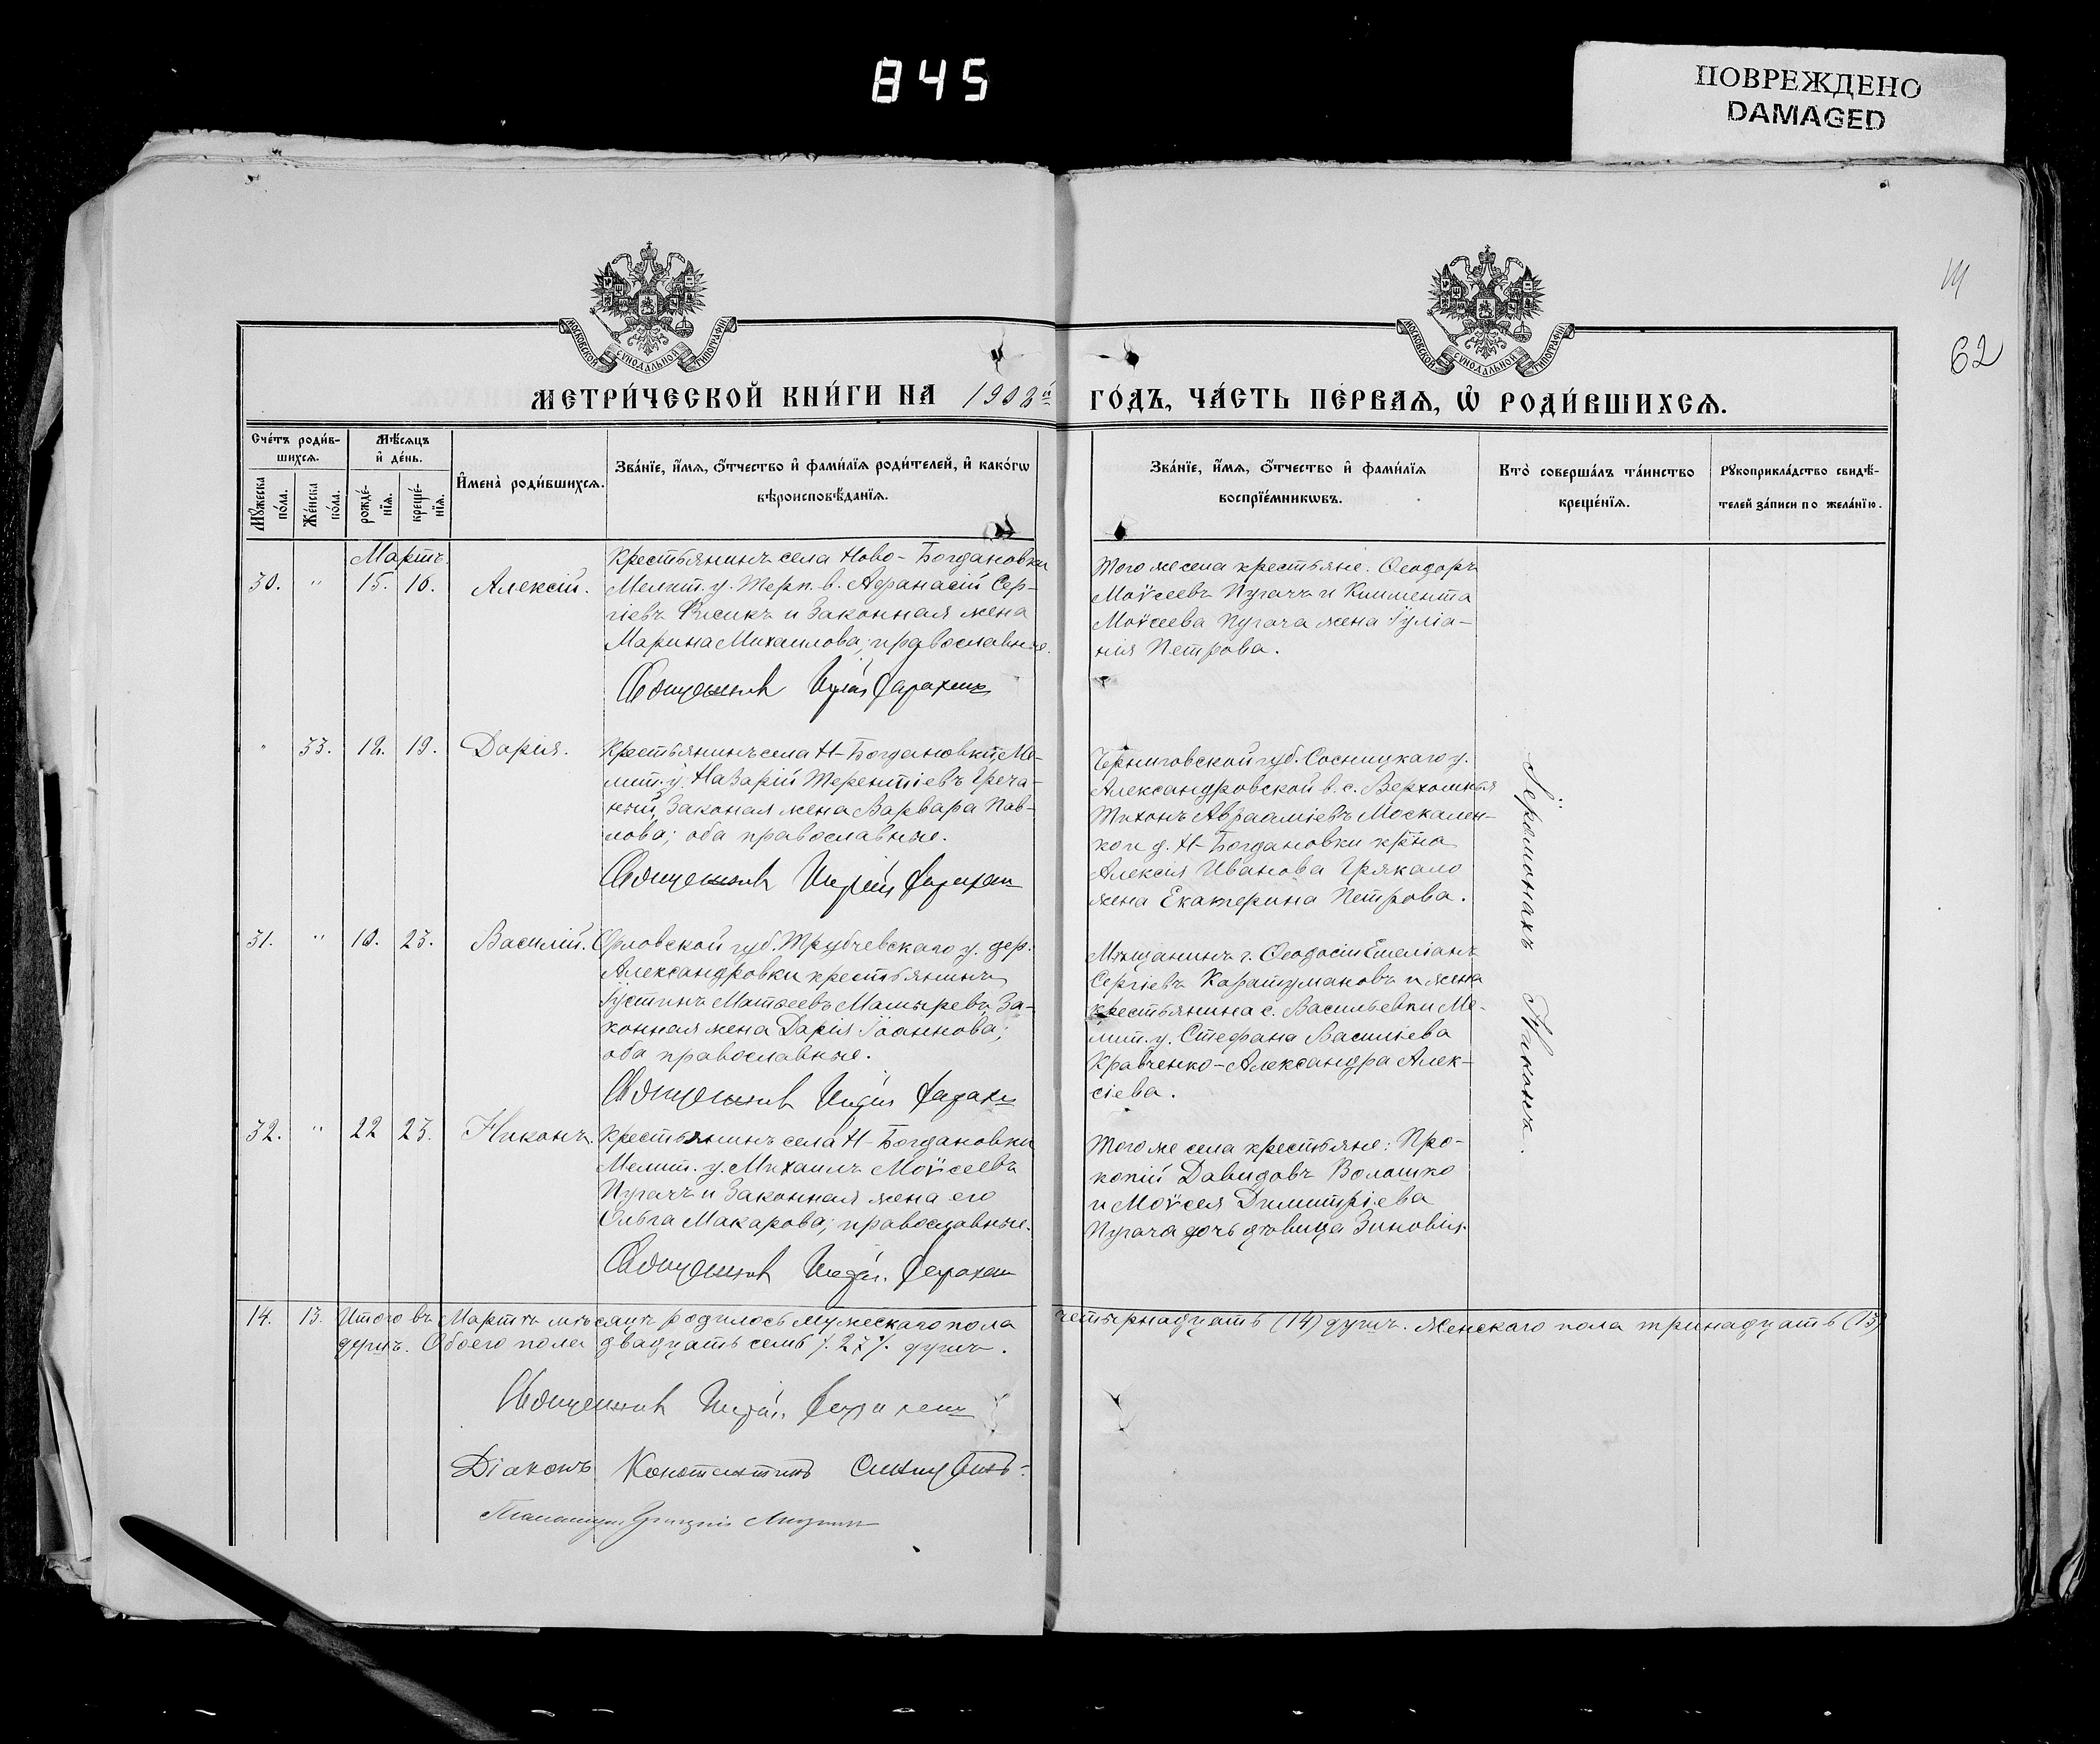 845
ПОВРЕЖДЕНО
DAMAGED
62
МОСКОВСКОЙ СѴНОДАЛЬНОЙ ТИПОГРАФІИ
МОСКОВСКОЙ СѴНОДАЛЬНОЙ ТИПОГРАФІИ
МЕТРИ́ЧЕСКОЙ КНИ́ГИ НА 1908й
ГО́ДЪ, ЧА́СТЬ ПЕ́РВАѦ, Ѽ РОДИ́ВШИХСѦ.
Сче́тъ роди́в-
шихсѧ.
Мѣ́сѧцъ
и҆ де́нь.
Мꙋ́жеска по́ла.
Же́нска по́ла.
рожде́-нїѧ.
креще́-нїѧ.
И҆мена̀ роди́вшихсѧ.
Зва́нїе, и҆́мѧ, ѻ҆́тчество и҆ фами́лїѧ роди́телей, и҆ како́гѡ
вѣроисповѣ́данїѧ.
Зва́нїе, и҆́мѧ, ѻ҆́тчество и҆ фами́лїѧ
воспрїе́мникѡвъ.
Кто̀ соверша́лъ та́инство
креще́нїѧ.
Рꙋкоприкла́дство свидѣ́-
телей за́писи по жела́нїю.
Мартъ
30. " 15. 16. Алексій.
Крестьянинъ села Ново-Богдановки
Мелит. у. Терп. в. Афанасій Сер-
гіевъ и законная жена
Марина Михаилова; православные.
Священникъ
Того же села крестьяне: Ѳеодоръ
Моѵсеевъ Пугачъ и Климента
Моѵсеева Пугача жена Іуліа-
нія Петрова.
" 33. 18. 19. Дарія.
Крестьянинъ села Н-Богдановки, Ме-
лит. у. Назарій Терентіевъ Греча-
ный, законая жена Варвара Пав-
лова; оба православные.
Священникъ
Черниговской губ. Сосницкаго у.
Александровской в. с.
Тихонъ Аврааміевъ Москален-
ко и д. Н-Богдановки кр-на
Алексія Иванова Грякало
жена Екатерина Петрова.
31. " 10. 23. Василій.
Орловской губ. Трубчевскаго у. дер.
Александровки крестьянинъ
Іустинъ Матѳеевъ Мамыревъ, за-
конная жена Дарія Іоаннова;
оба православные.
Священникъ
Мѣщанинъ г. Ѳеодосіи Емеліанъ
Сергіевъ Каратумановъ и жена
крестьянина с. Васильевки Ме-
лит. у. Стефана Василіева
Кравченко - Александра Алек-
сіева.
32. " 22 23. Никонъ.
Крестьянинъ села Н-Богдановки
Мелит. у. Михаилъ Моѵсеевъ
Пугачъ и законная жена его
Ольга Макарова; православные.
Священникъ
Того же села крестьяне: Про-
копій Давидовъ Волошко
и Моѵсея Димитріева
Пугача дочь дѣвица Зиновія.
Іеромонахъ Никонъ.
14. 13. Итого въ Мартѣ мѣсяцѣ родилось мужескаго пола четырнадцать (14) душъ. Женскаго пола тринадцать (13)
душъ. Обоего пола двадцать семь /.27/. душъ.
Священникъ
Діаконъ Константинъ